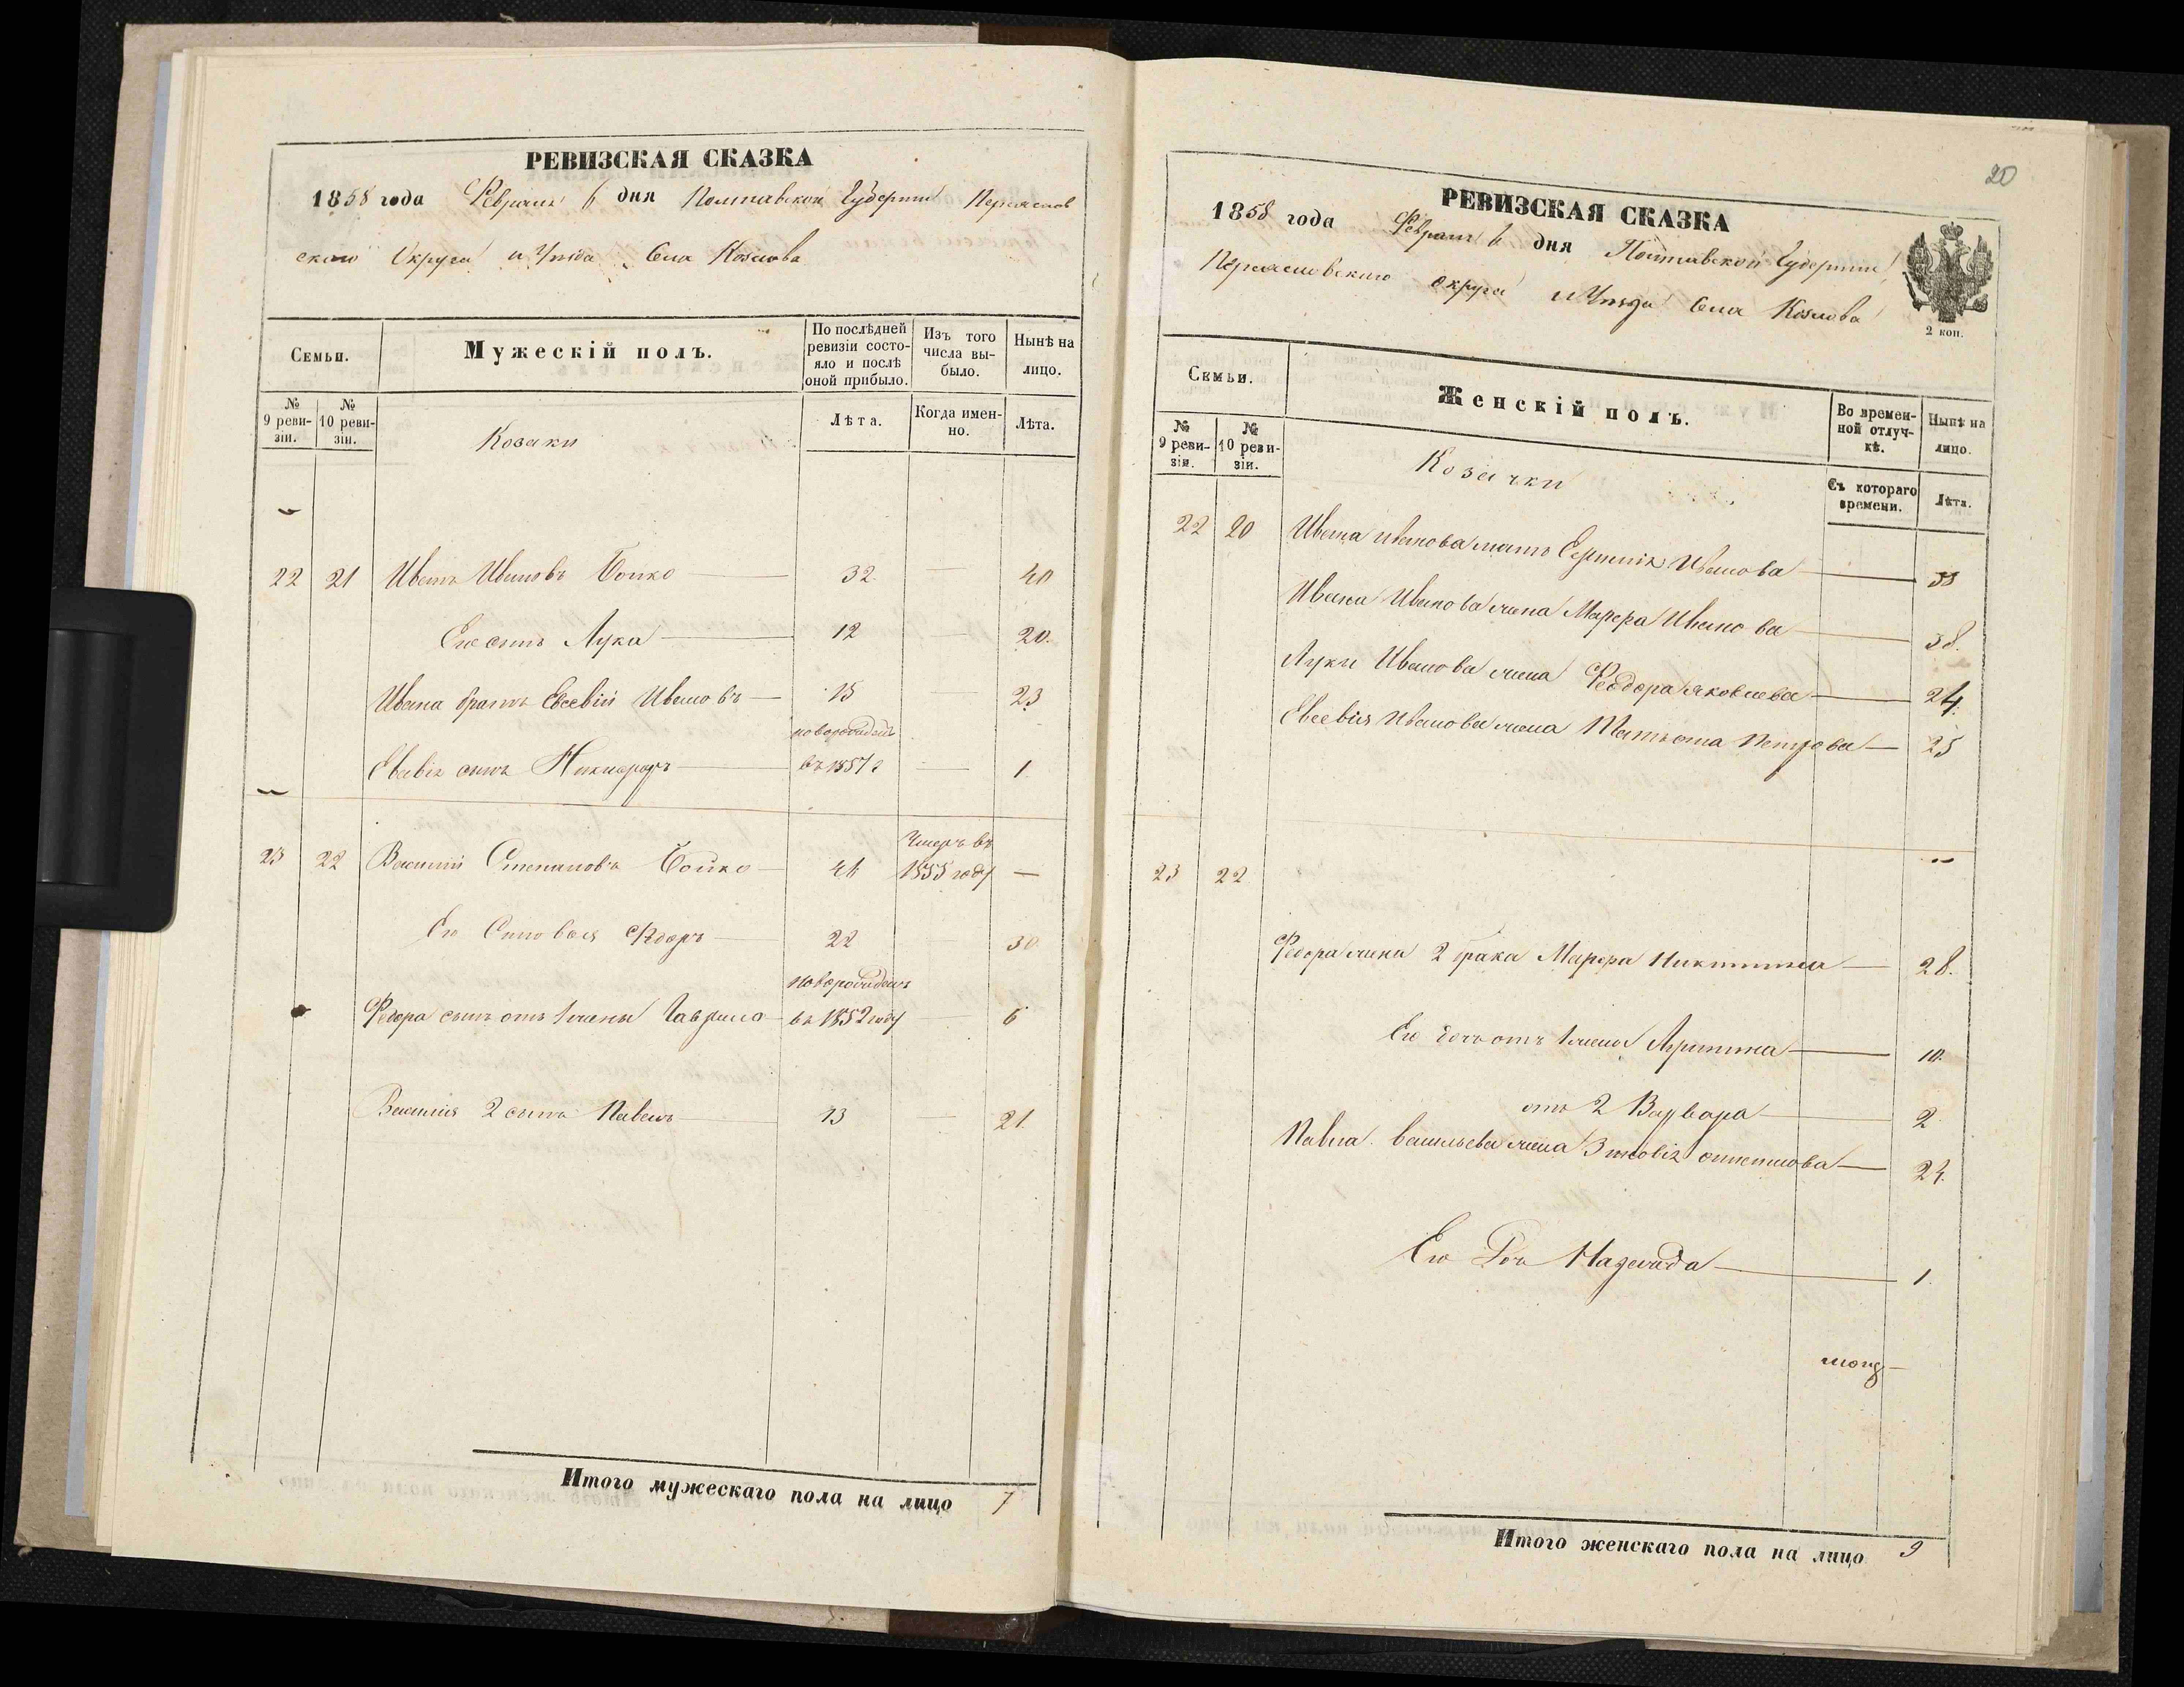 РЕВИЗСКАЯ СКАЗКА
1858 года Февраля 6 дня Полтавской Губернии Переяслов
скаго Округа и Уѣзда Села Козлова
Семьи.
Мужескій полъ.
По послѣдней ревизіи состо-
яло и послѣ оной прибыло.
Изъ того числа вы-
было.
Нынѣ на лицо.
№ 9 реви-
зіи.
№ 10 реви-
зіи.
Козаки
Лѣта.
Когда имен-
но.
Лѣта.
22 21 Иванъ Ивановъ Бойко — 32. — 40
Его сынъ Лука — 12 — 20.
Ивана братъ Евсевій Ивановъ — 15 — 23
новорожденъ
Евсевія сынъ Никифоръ — въ 1857 г — 1
Умеръ въ
23 22 Василий Степановъ Бойко — 46 1855 году —
Его Сыновья Федоръ — 22 — 30
новорожденъ
Федора сынъ отъ 1 жены Гаврило — въ 1852 году — 6
Василия 2 сынъ Павелъ — 13 — 21.
Итого мужескаго пола на лицо 7
20
РЕВИЗСКАЯ СКАЗКА
1858 года Февраля 6 дня Полтавской Губернии
Переясловскаго округа и Уѣзда Села Козлова
2 коп.
Семьи.
Женскій полъ.
Во времен-
ной отлуч-
кѣ.
Нынѣ на лицо.
№ 9 реви-
зіи.
№ 10 реви-
зіи.
Козачки
Съ котораго времени.
Лѣта.
22 20 Ивана Иванова мать Иванова — 58
Ивана Иванова жена Марфа Иванова — 38.
Луки Иванова жена Феодора Яковлева — 24.
Евсевія Иванова жена Татьяна Петрова — 25
23 22
Федора жена 2 брака Марфа Никитина — 28.
Его дочь отъ 1 жены — 10.
отъ 2 Варвара — 2
Павла Васильева жена — 24.
Его Дочь Надежда — 1.
Итого женскаго пола на лицо 9